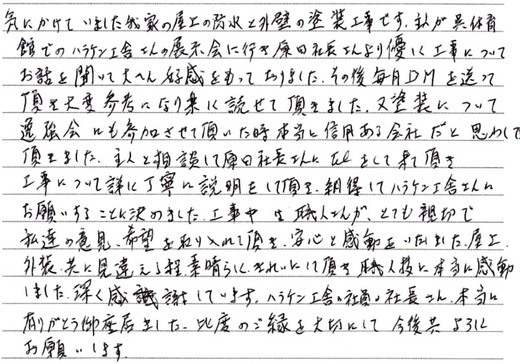 気にかけていました我家の屋上の防水と外壁の塗装工事です。私が呉体育
館でのハラケン工舎さんの展示会に行き原田社長さんより優しく工事について
お話を聞いて大へん好感をもっておりました。その後毎月DMを送って
頂き大変参考になり楽しく読ませて頂きました。又塗装について
勉強会にも参加させて頂いた時本当に信用ある会社だと思わして
頂きました。主人と相談して原田社長さんにTELをして来て頂き
工事について詳しく丁寧に説明をして頂き、納得してハラケン工舎さんに
お願いすることに決めました。工事中 職人さんが、とても親切で
私達の意見、希望を取り入れて頂き、安心と感動をいたしました。屋上、
外装、共に見違える程素晴らしくきれいにして頂き職人技に本当に感動
しました。深く感謝しています。ハラケン工舎の社員、社長さん、本当に
有りがとう御座居ました。此度のご縁を大切にして今後共よろしく
お願いします。